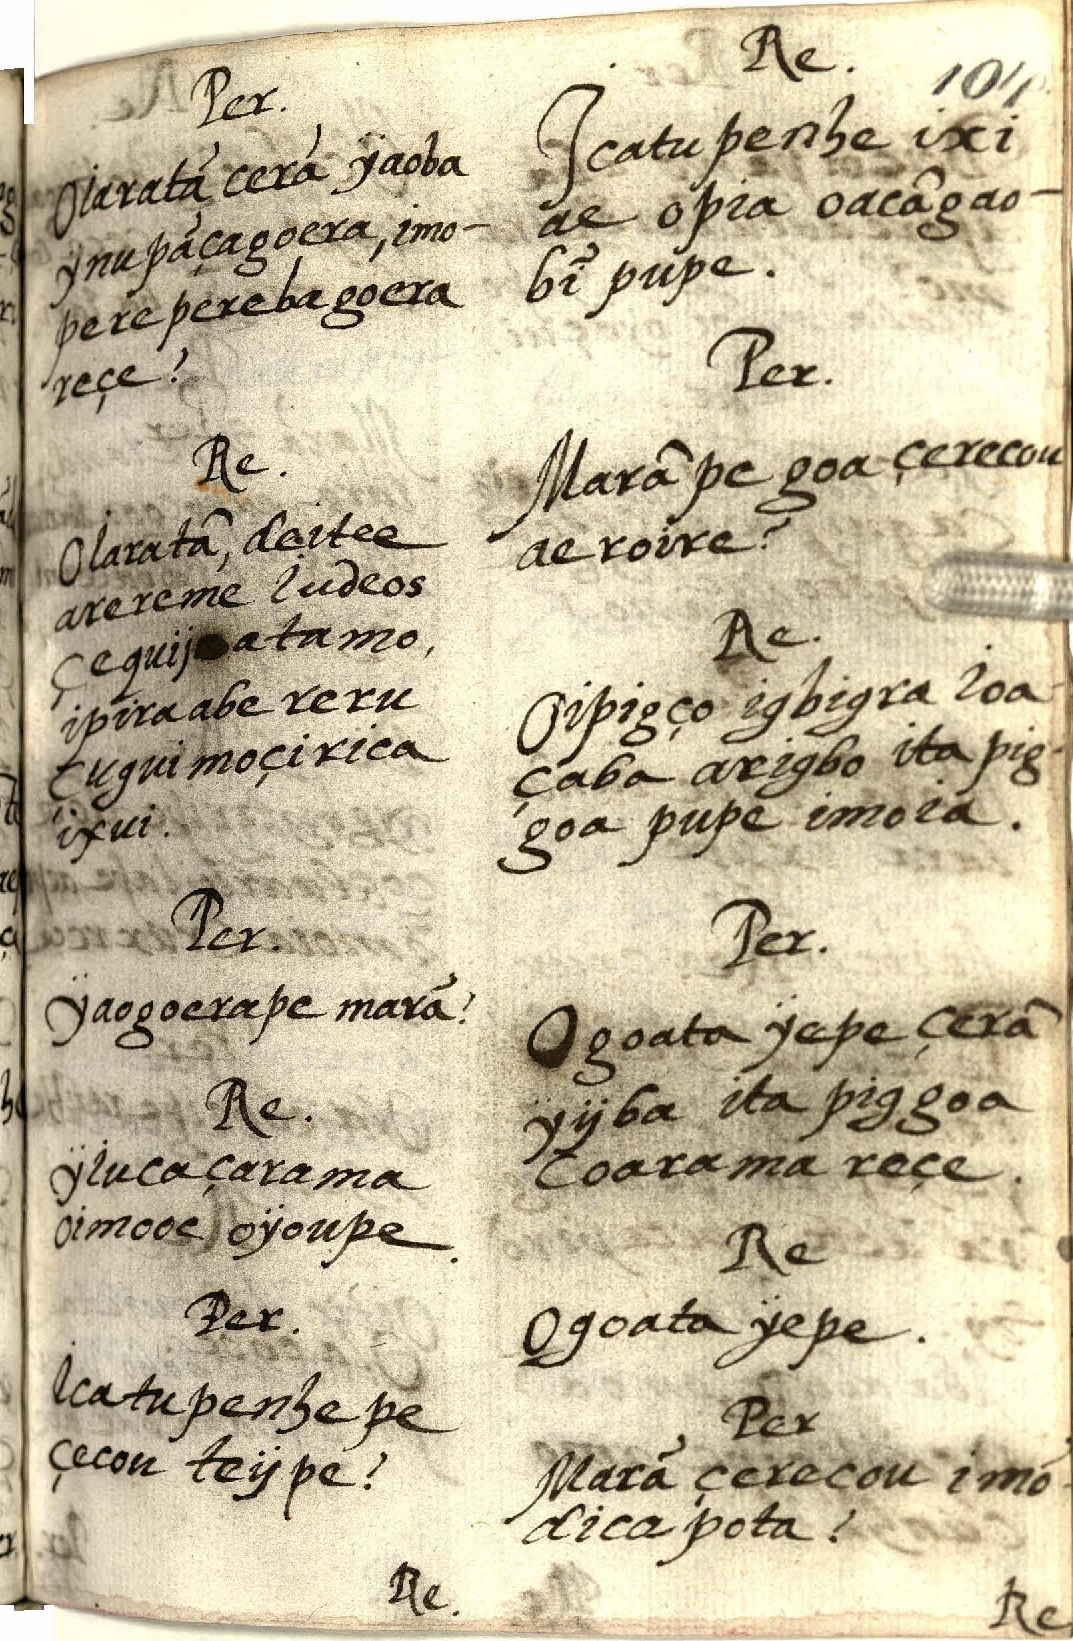 Per.
Oiaratã cerã ÿaoba
ÿnupãçagoera, imo-
pere perebagoera
reçe?
Re.
Oiaratã, deitee
arereme Iudeos
çequij atamo,
ipira abe reru
tugui moçirica
ixui.
Per.
ÿaogoerape marã?
Re.
ÿiucaçarama
oimooc oÿoupe.
Per.
Icatupenhe pe
çecou teijpe?
Re.
Re.
104
Icatupenhe ixi
ae opia oacãgao-
bĩ pupe.
Per.
Marã pe goa çerecou
ae roire?
Re.
Oipigço igbigra ioa
çaba arigbo ita pig-
goa pupe imoia.
Per.
Ogoata ÿepe çerã
ÿijba ita piggoa
coarama reçe.
Re
Ogoata ÿepe.
Per
Marã çerecou imo-
dica pota?
Re